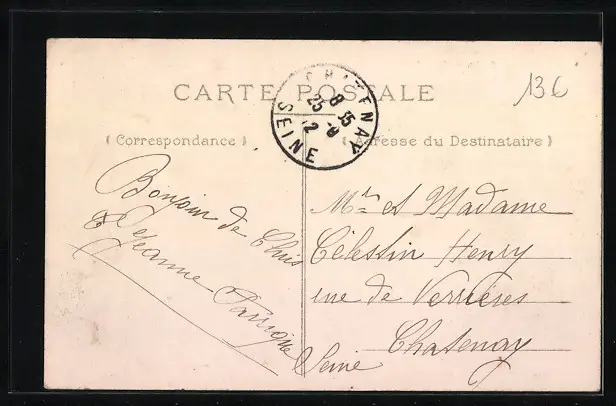 CARTE POSTALE
136
CHATENAY
8 35
25 - 2
SEINE
( Correspondance )
( Adresse du Destinataire )
Bonjour de
Jeanne
Mr et Madame
Célestin Henry
rue de Verrières
Chatenay
Seine